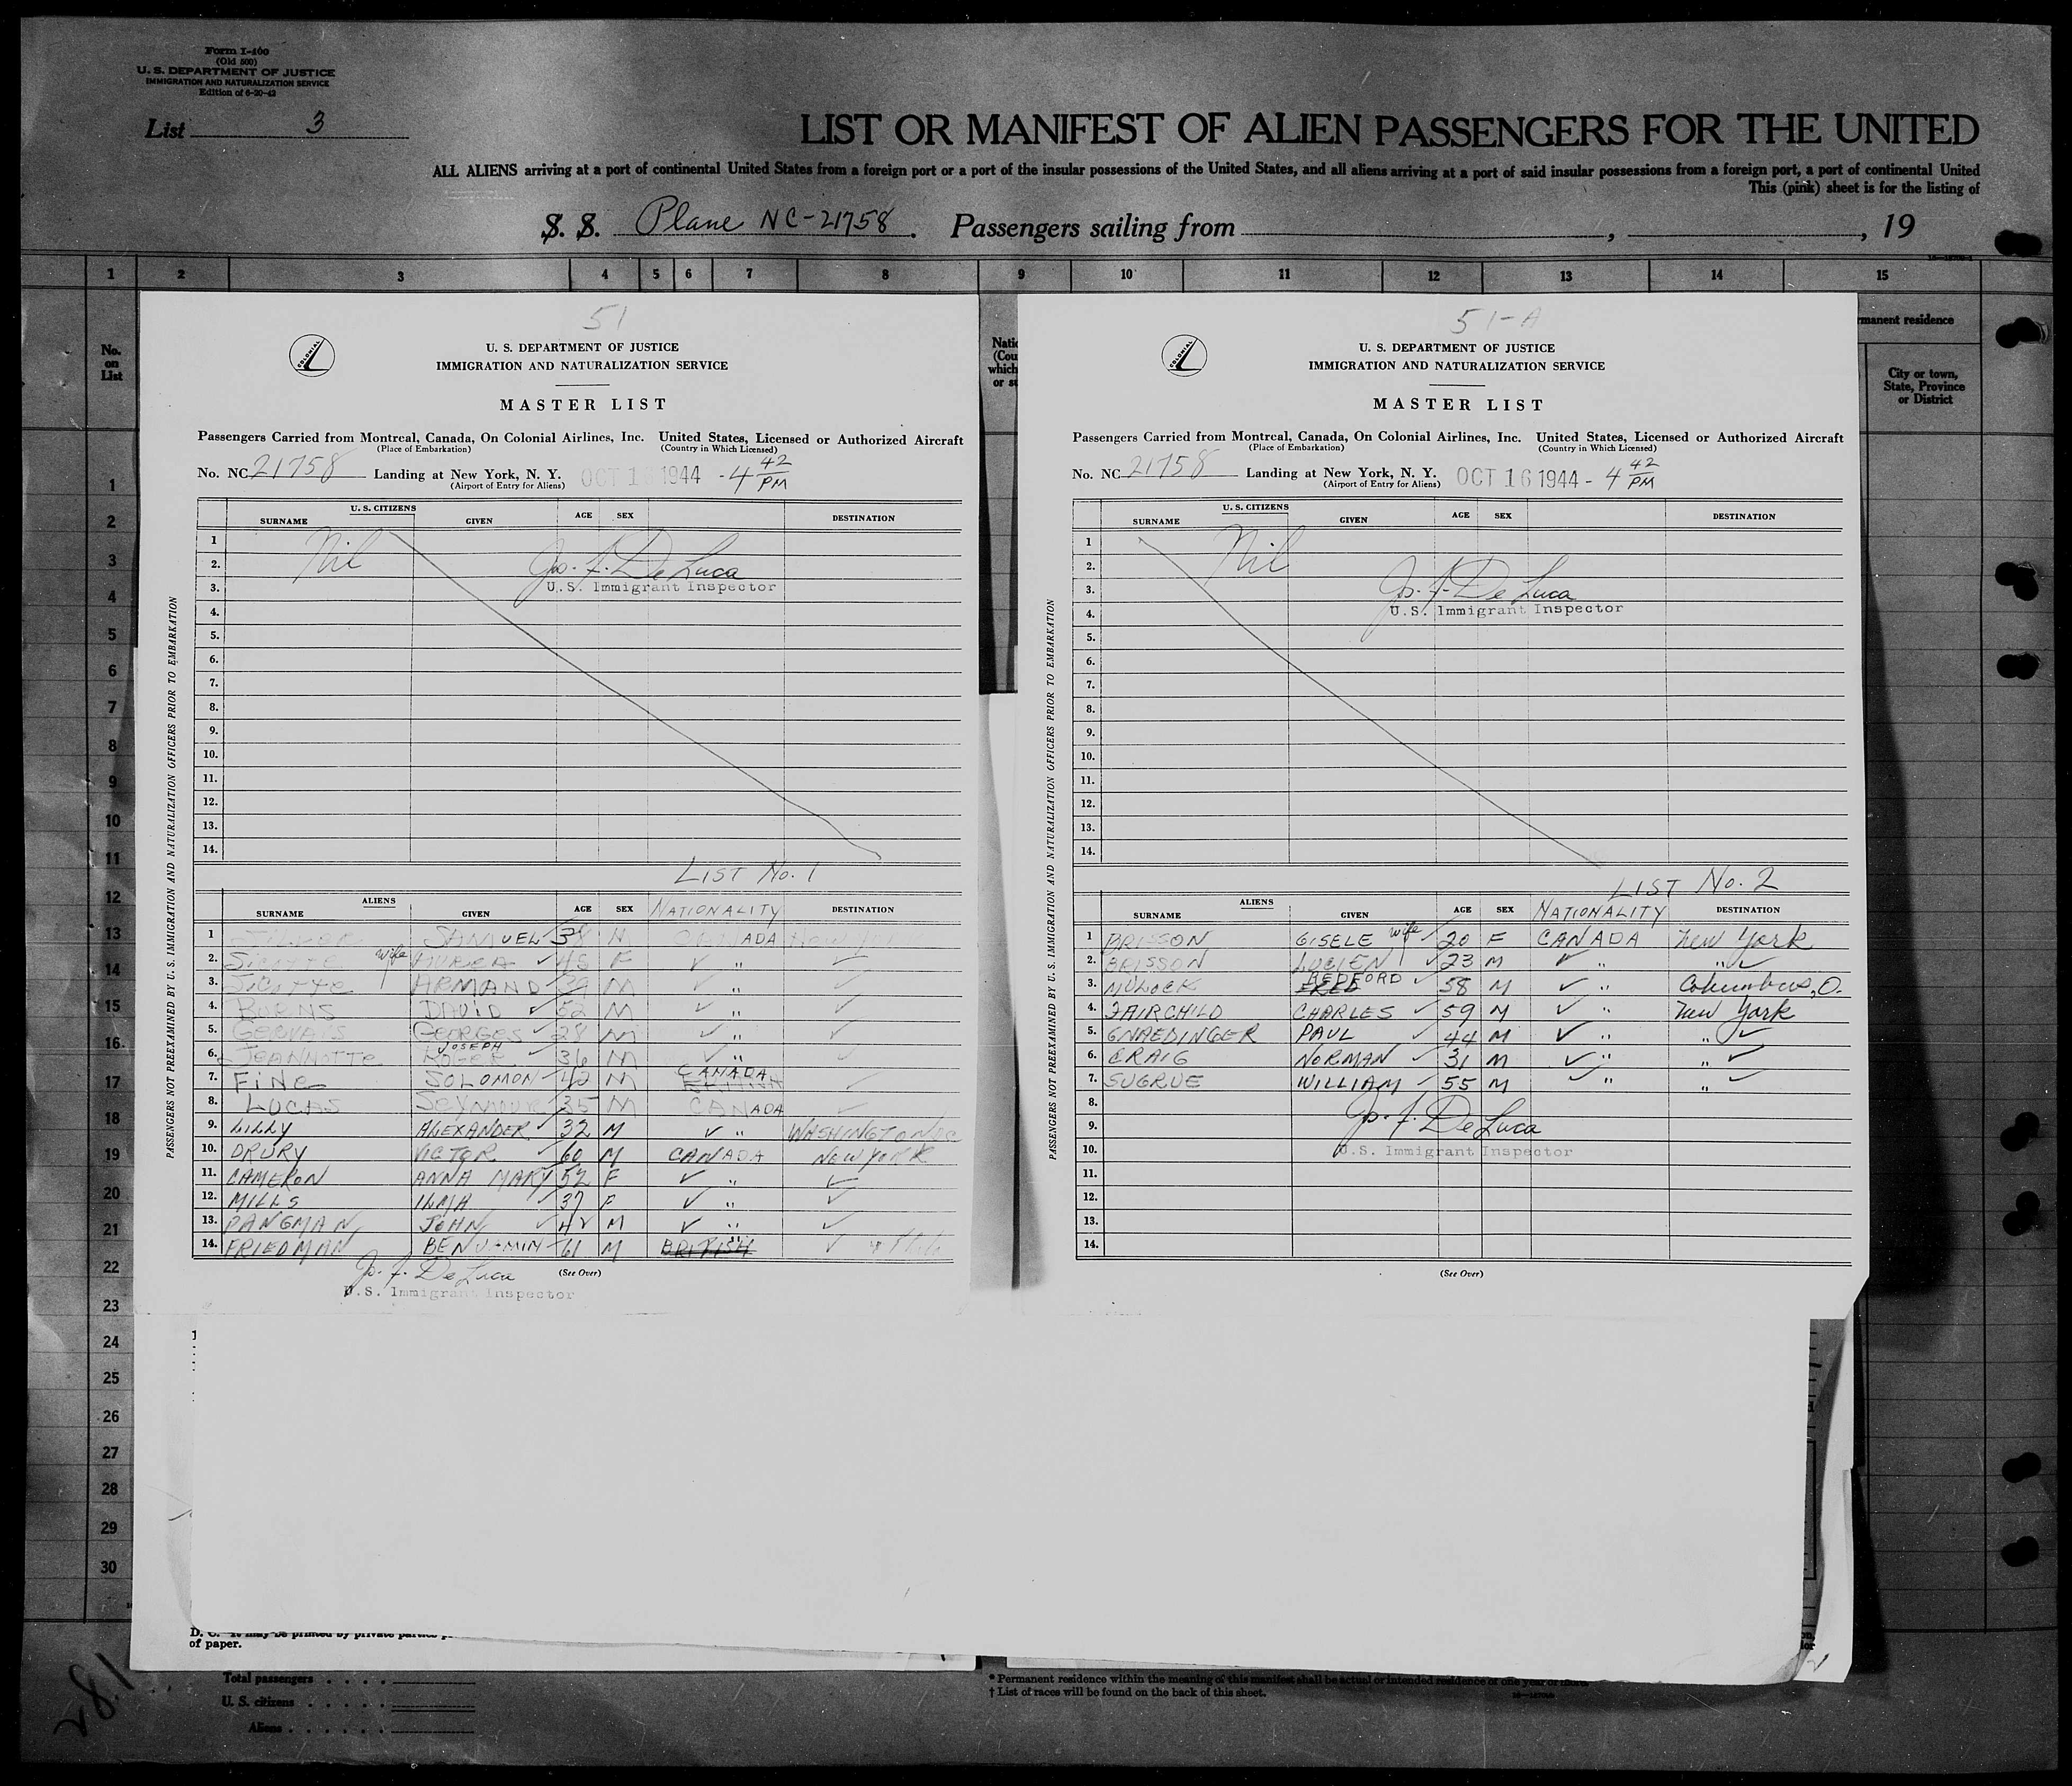 Form I-460
(Old 500)
U. S. DEPARTMENT OF JUSTICE
IMMIGRATION AND NATURALIZATION SERVICE
Edition of 6-20-42
List 3
LIST OR MANIFEST OF ALIEN PASSENGERS FOR THE UNITED
ALL ALIENS arriving at a port of continental United States from a foreign port or a port of the insular possessions of the United States, and all aliens arriving at a port of said insular possessions from a foreign port, a port of continental United
This (pink) sheet is for the listing of
S. S. Plane NC-21758. Passengers sailing from , , 19
1 2 3 4 5 6 7 8 9 10 11 12 13 14 15
No. on List
manent residence
City or town, State, Province or District
1
2
3
4
5
6
7
8
9
10
11
12
13
14
15
16
17
18
19
20
21
22
23
24
25
26
27
28
29
30
51
COLONIAL
U. S. DEPARTMENT OF JUSTICE
IMMIGRATION AND NATURALIZATION SERVICE
MASTER LIST
Passengers Carried from Montreal, Canada, On Colonial Airlines, Inc. United States, Licensed or Authorized Aircraft
(Place of Embarkation) (Country in Which Licensed)
No. NC 21758 Landing at New York, N. Y. OCT 16 1944 - 4 42 PM
(Airport of Entry for Aliens)
U. S. CITIZENS
SURNAME GIVEN AGE SEX DESTINATION
1 Nil
2. Jos. F. De Luca
3. U.S. Immigrant Inspector
4.
5.
6.
7.
8.
9.
10.
11.
12.
13.
14.
PASSENGERS NOT PREEXAMINED BY U. S. IMMIGRATION AND NATURALIZATION OFFICERS PRIOR TO EMBARKATION
LIST No. 1
ALIENS
SURNAME GIVEN AGE SEX NATIONALITY DESTINATION
1 SAMUEL 38 M CANADA New York
2. wife ✓ 45 F ✓ " ✓
3. ARMAND ✓ 39 M ✓ " ✓
4. BURNS DAVID ✓ 52 M ✓ " ✓
5. GERVAIS GEORGES ✓ 28 M ✓ " ✓
6. JEANNOTTE JOSEPH ROGER ✓ 36 M ✓ " ✓
7. FINE SOLOMON ✓ 42 M CANADA ✓
8. LUCAS SEYMOUR 35 M CANADA ✓
9. LILLY ALEXANDER ✓ 32 M ✓ " WASHINGTON DC
10. DRURY VICTOR 60 M CANADA NEW YORK
11. CAMERON ANNA MARY 52 F ✓ " ✓
12. MILLS ILMA ✓ 37 F ✓ " ✓
13. PANGMAN JOHN ✓ 42 M ✓ " ✓
14. FRIEDMAN BENJAMIN 61 M BRITISH " ✓
Jos. F. De Luca
U.S. Immigrant Inspector
(See Over)
51-A
COLONIAL
U. S. DEPARTMENT OF JUSTICE
IMMIGRATION AND NATURALIZATION SERVICE
MASTER LIST
Passengers Carried from Montreal, Canada, On Colonial Airlines, Inc. United States, Licensed or Authorized Aircraft
(Place of Embarkation) (Country in Which Licensed)
No. NC 21758 Landing at New York, N. Y. OCT 16 1944 - 4 42 PM
(Airport of Entry for Aliens)
U. S. CITIZENS
SURNAME GIVEN AGE SEX DESTINATION
1 Nil
2.
3. Jos. F. De Luca
4. U.S. Immigrant Inspector
5.
6.
7.
8.
9.
10.
11.
12.
13.
14.
PASSENGERS NOT PREEXAMINED BY U. S. IMMIGRATION AND NATURALIZATION OFFICERS PRIOR TO EMBARKATION
LIST No. 2
ALIENS
SURNAME GIVEN AGE SEX NATIONALITY DESTINATION
1 BRISSON GISELE wife ✓ 20 F CANADA New York
2. BRISSON LUCIEN ✓ 23 M ✓ " " ✓
3. MULOCK FRED REDFORD ✓ 58 M ✓ " Columbus, O.
4. FAIRCHILD CHARLES ✓ 59 M ✓ " New York
5. GNAEDINGER PAUL ✓ 44 M ✓ " " ✓
6. CRAIG NORMAN ✓ 31 M ✓ " " ✓
7. SUGRUE WILLIAM ✓ 55 M ✓ " " ✓
8.
9. Jos. F. De Luca
10. U.S. Immigrant Inspector
11.
12.
13.
14.
(See Over)
of paper.
Total passengers
U. S. citizens
Aliens
* Permanent residence within the meaning of this manifest shall be actual or intended residence of one year or more.
† List of races will be found on the back of this sheet.
281